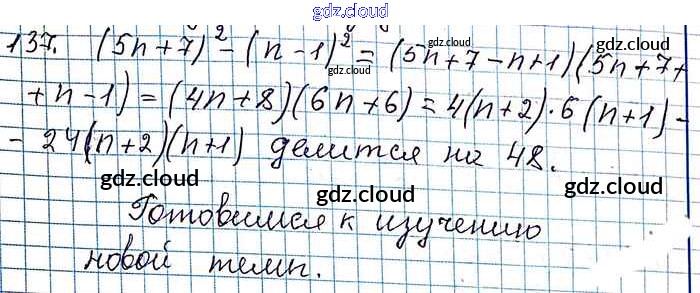 gdz.cloud
137. (5n+7)² - (n-1)² = (5n+7-n+1)(5n+7+
gdz.cloud
gdz.cloud
+n-1) = (4n+8)(6n+6) = 4(n+2)·6(n+1) -
- 24(n+2)(n+1) делится на 48.
gdz.cloud gdz.cloud gdz.cloud
Готовимся к изучению
новой темы.
gdz.cloud gdz.cloud